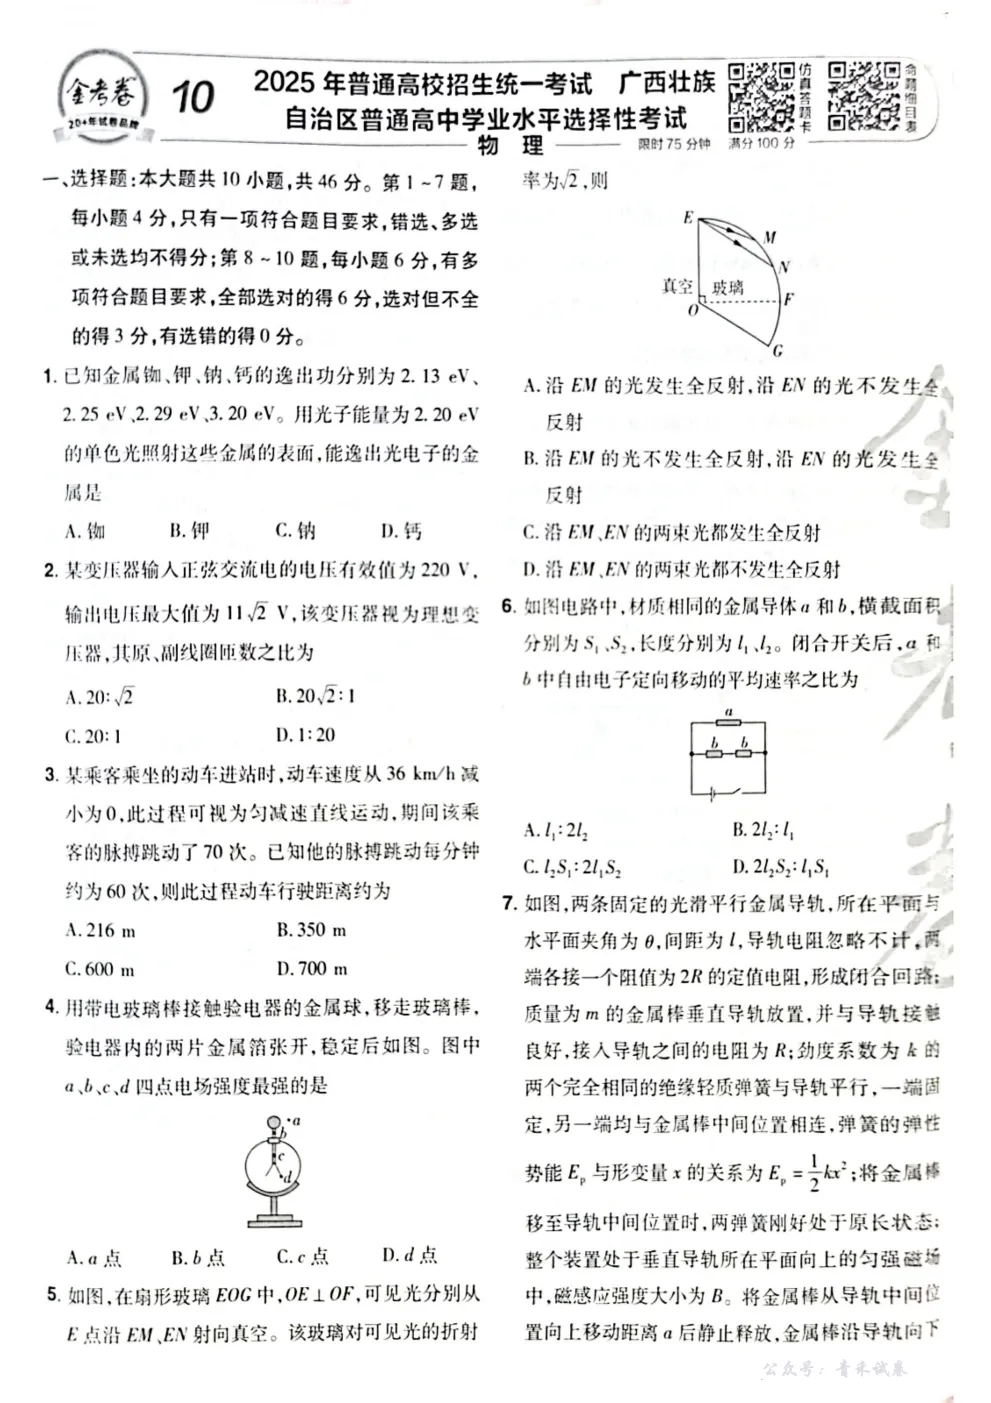 金考卷
20+年试卷品牌
10
2025年普通高校招生统一考试 广西壮族
自治区普通高中学业水平选择性考试
物 理
限时75分钟 满分100分
仿真答题卡
命题细目表
一、选择题:本大题共10小题,共46分。第1~7题,
每小题4分,只有一项符合题目要求,错选、多选
或未选均不得分;第8~10题,每小题6分,有多
项符合题目要求,全部选对的得6分,选对但不全
的得3分,有选错的得0分。
1. 已知金属铷、钾、钠、钙的逸出功分别为2.13 eV、
2.25 eV、2.29 eV、3.20 eV。用光子能量为2.20 eV
的单色光照射这些金属的表面,能逸出光电子的金
属是
A. 铷 B. 钾 C. 钠 D. 钙
2. 某变压器输入正弦交流电的电压有效值为220 V,
输出电压最大值为11√2 V,该变压器视为理想变
压器,其原、副线圈匝数之比为
A. 20:√2 B. 20√2:1
C. 20:1 D. 1:20
3. 某乘客乘坐的动车进站时,动车速度从36 km/h减
小为0,此过程可视为匀减速直线运动,期间该乘
客的脉搏跳动了70次。已知他的脉搏跳动每分钟
约为60次,则此过程动车行驶距离约为
A. 216 m B. 350 m
C. 600 m D. 700 m
4. 用带电玻璃棒接触验电器的金属球,移走玻璃棒,
验电器内的两片金属箔张开,稳定后如图。图中
a、b、c、d四点电场强度最强的是
a
b
c
d
A. a点 B. b点 C. c点 D. d点
5. 如图,在扇形玻璃EOG中,OE⊥OF,可见光分别从
E点沿EM、EN射向真空。该玻璃对可见光的折射
率为√2,则
E
M
N
真空 玻璃
O
F
G
A. 沿EM的光发生全反射,沿EN的光不发生全
反射
B. 沿EM的光不发生全反射,沿EN的光发生全
反射
C. 沿EM、EN的两束光都发生全反射
D. 沿EM、EN的两束光都不发生全反射
6. 如图电路中,材质相同的金属导体a和b,横截面积
分别为S₁、S₂,长度分别为l₁、l₂。闭合开关后,a和
b中自由电子定向移动的平均速率之比为
a
b b
A. l₁:2l₂ B. 2l₂:l₁
C. l₂S₁:2l₁S₂ D. 2l₂S₂:l₁S₁
7. 如图,两条固定的光滑平行金属导轨,所在平面与
水平面夹角为θ,间距为l,导轨电阻忽略不计,两
端各接一个阻值为2R的定值电阻,形成闭合回路;
质量为m的金属棒垂直导轨放置,并与导轨接触
良好,接入导轨之间的电阻为R;劲度系数为k的
两个完全相同的绝缘轻质弹簧与导轨平行,一端固
定,另一端均与金属棒中间位置相连,弹簧的弹性
势能Eₚ与形变量x的关系为Eₚ=1/2kx²;将金属棒
移至导轨中间位置时,两弹簧刚好处于原长状态;
整个装置处于垂直导轨所在平面向上的匀强磁场
中,磁感应强度大小为B。将金属棒从导轨中间位
置向上移动距离a后静止释放,金属棒沿导轨向下
金
考
卷
公众号:青禾试卷